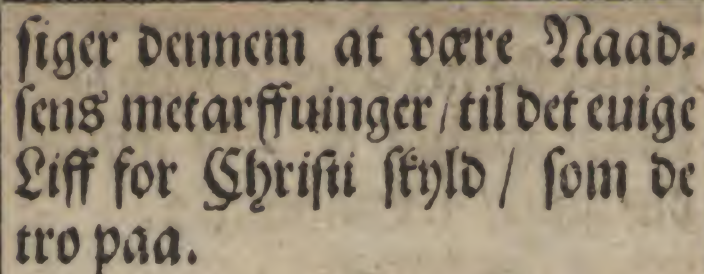 siger dennem at være Naad-
sens metarffuinger / til det euige
Liff for Christi skyld / som de
tro paa.